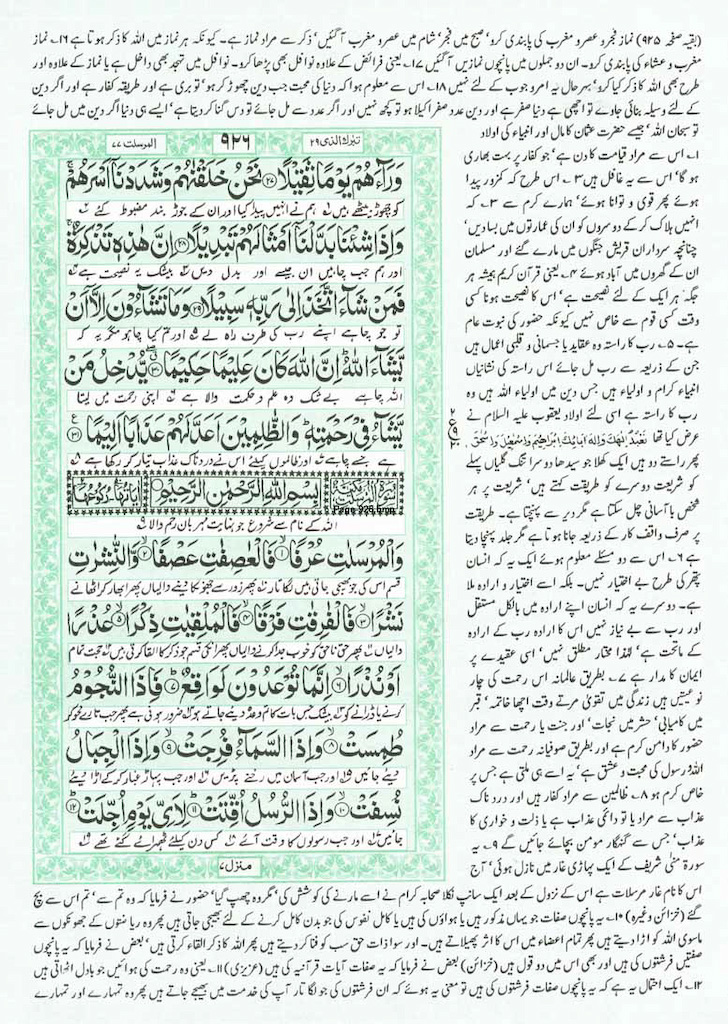 (بقیہ صفحہ ۹۲۵) نماز فجر و عصر و مغرب کی پابندی کرو' صبح میں فجر' شام میں عصر و مغرب آگئیں' ذکر سے مراد نماز ہے۔ کیونکہ ہر نماز میں اللہ کا ذکر ہوتا ہے ۱۶۔ نماز
مغرب و عشاء کی پابندی کرو۔ ان دو جملوں میں پانچوں نمازیں آگئیں ۱۷۔ یعنی فرائض کے علاوہ نوافل بھی پڑھا کرو۔ نوافل میں تہجد بھی داخل ہے یا نماز کے علاوہ اور
طرح بھی اللہ کا ذکر کیا کرو' بہرحال یہ امر وجوب کے لئے نہیں ۱۸۔ اس سے معلوم ہوا کہ دنیا کی محبت جب دین چھوڑ کر ہو' تو بری ہے اور طریقہ کفار ہے اور اگر دین
کے لئے وسیلہ بنائی جاوے تو اچھی ہے دنیا صفر ہے اور دین عدد صفر اکیلا ہو تو کچھ نہیں اور اگر عدد سے مل جائے تو دس گنا کر دیتا ہے' ایسے ہی دنیا اگر دین میں مل جائے
تو سبحان اللہ' جیسے حضرت عثمان کا مال اور انبیاء کی اولاد
المرسلت ۷۷
۹۲۶
تبرك الذی ۲۹
وَرَآءَهُمْ يَوْمًا ثَقِيْلًا ۝۲۷ نَحْنُ خَلَقْنٰهُمْ وَشَدَدْنَآ اَسْرَهُمْ
کو چھوڑ بیٹھے ہیں ہم نے انہیں پیدا کیا اور ان کے جوڑ بند مضبوط کئے
وَاِذَا شِئْنَا بَدَّلْنَآ اَمْثَالَهُمْ تَبْدِيْلًا ۝۲۸ اِنَّ هٰذِهٖ تَذْكِرَةٌ
اور ہم جب چاہیں ان جیسے اور بدل دیں بیشک یہ نصیحت ہے
فَمَنْ شَآءَ اتَّخَذَ اِلٰى رَبِّهٖ سَبِيْلًا ۝۲۹ وَمَا تَشَآءُوْنَ اِلَّآ اَنْ
تو جو چاہے اپنے رب کی طرف راہ لے اور تم کیا چاہو مگر یہ کہ
يَّشَآءَ اللّٰهُ اِنَّ اللّٰهَ كَانَ عَلِيْمًا حَكِيْمًا ۝۳۰ يُّدْخِلُ مَنْ
اللہ چاہے بے شک وہ علم و حکمت والا ہے اپنی رحمت میں لیتا
يَّشَآءُ فِيْ رَحْمَتِهٖ وَالظّٰلِمِيْنَ اَعَدَّ لَهُمْ عَذَابًا اَلِيْمًا ۝۳۱
ہے جسے چاہے اور ظالموں کیلئے اس نے دردناک عذاب تیار کر رکھا ہے
بِسْمِ اللّٰهِ الرَّحْمٰنِ الرَّحِيْمِ
Page 926.bmp
اللہ کے نام سے شروع جو نہایت مہربان رحم والا
وَالْمُرْسَلٰتِ عُرْفًا ۝۱ فَالْعٰصِفٰتِ عَصْفًا ۝۲ وَّالنّٰشِرٰتِ
قسم اس کی جو بھیجی جاتی ہیں لگاتار پھر زور سے جھونکا دینے والیاں پھر ابھار کر اٹھانے
نَشْرًا ۝۳ فَالْفٰرِقٰتِ فَرْقًا ۝۴ فَالْمُلْقِيٰتِ ذِكْرًا ۝۵ عُذْرًا
والیاں پھر حق ناحق کو خوب جدا کرنے والیاں پھر انکی قسم جو ذکر کا القا کرتی ہیں حجت تمام
اَوْ نُذْرًا ۝۶ اِنَّمَا تُوْعَدُوْنَ لَوَاقِعٌ ۝۷ فَاِذَا النُّجُوْمُ
کرنے یا ڈرانے کو بیشک جس بات کا تم وعدہ دیئے جاتے ہو ضرور ہونی ہے پھر جب تارے محو کر
طُمِسَتْ ۝۸ وَاِذَا السَّمَآءُ فُرِجَتْ ۝۹ وَاِذَا الْجِبَالُ
دیئے جائیں اور جب آسمان میں رخنے پڑیں اور جب پہاڑ غبار کر کے اڑا دیئے
نُسِفَتْ ۝۱۰ وَاِذَا الرُّسُلُ اُقِّتَتْ ۝۱۱ لِاَيِّ يَوْمٍ اُجِّلَتْ ۝۱۲
جائیں اور جب رسولوں کا وقت آئے کس دن کیلئے ٹھہرائے گئے تھے
منزل ۷
۱۔ اس سے مراد قیامت کا دن ہے' جو کفار پر بہت بھاری
ہو گا' اس سے یہ غافل ہیں ۳۔ اس طرح کہ کمزور پیدا
ہوئے پھر قوی و توانا ہوئے' ہمارے کرم سے ۳۔ کہ
انہیں ہلاک کر کے دوسروں کو ان کی عمارتوں میں بسا دیں'
چنانچہ سرداران قریش جنگوں میں مارے گئے اور مسلمان
ان کے گھروں میں آباد ہوئے ۴۔ یعنی قرآن کریم ہمیشہ ہر
جگہ' ہر ایک کے لئے نصیحت ہے' اس کا نصیحت ہونا کسی
وقت کسی قوم سے خاص نہیں کیونکہ حضور کی نبوت عام
ہے۔ ۵۔ رب کا راستہ وہ عقاید یا جسمانی و قلبی اعمال ہیں
جن کے ذریعہ سے رب مل جائے اس راستہ کی نشانیاں
انبیاء کرام و اولیاء ہیں جس دین میں اولیاء اللہ ہیں وہ
رب کا راستہ ہے اسی لئے اولاد یعقوب علیہ السلام نے
عرض کیا تھا نَعْبُدُ اِلٰهَكَ وَاِلٰهَ اٰبَآئِكَ اِبْرٰهِيْمَ وَاِسْمٰعِيْلَ وَاِسْحٰقَ
پھر راستے دو ہیں ایک کھلا جو سیدھا دوسرا تنگ گلیاں پہلے
کو شریعت دوسرے کو طریقت کہتے ہیں' شریعت پر ہر
شخص با آسانی چل سکتا ہے مگر دیر سے پہنچتا ہے۔ طریقت
پر صرف واقف کار کے ذریعہ جانا ہوتا ہے مگر جلد پہنچا دیتا
ہے ۶۔ اس سے دو مسئلے معلوم ہوئے ایک یہ کہ انسان
پتھر کی طرح بے اختیار نہیں۔ بلکہ اسے اختیار و ارادہ ملا
ہے۔ دوسرے یہ کہ انسان اپنے ارادہ میں بالکل مستقل
اور رب سے بے نیاز نہیں اس کا ارادہ رب کے ارادہ
کے ماتحت ہے' لہٰذا مختار مطلق نہیں' اسی عقیدے پر
ایمان کا مدار ہے ۷۔ بطریق عالمانہ اس رحمت کی چار
نوعیتیں ہیں زندگی میں تقویٰ مرتے وقت اچھا خاتمہ' قبر
میں کامیابی' حشر میں نجات' اور جنت یا رحمت سے مراد
حضور کا دامن کرم ہے اور بطریق صوفیانہ رحمت سے مراد
اللہ رسول کی محبت و عشق ہے' یہ اسے ہی ملتی ہے جس پر
خاص کرم ہو ۸۔ ظالمین سے مراد کفار ہیں اور دردناک
عذاب سے مراد یا تو دائمی عذاب ہے یا ذلت و خواری کا
عذاب' جس سے گنہگار مومن بچائے جائیں گے ۹۔ یہ
سورۃ منٰی شریف کے ایک پہاڑی غار میں نازل ہوئی' آج
اس کا نام غار مرسلات ہے اس کے نزول کے بعد ایک سانپ نکلا صحابہ کرام نے اسے مارنے کی کوشش کی' مگر وہ چھپ گیا' حضور نے فرمایا کہ وہ تم سے' تم اس سے بچ
گئے (خزائن وغیرہ) ۱۰۔ یہ پانچوں صفات جو یہاں مذکور ہیں یا ہواؤں کی ہیں یا کامل نفوس کی جو بدن کامل کرنے کے لئے بھیجی جاتی ہیں پھر وہ ریاضتوں کے جھونکوں سے
ماسوی اللہ کو اڑا دیتے ہیں پھر تمام اعضاء میں اس کا اثر پھیلاتے ہیں۔ اور سوا ذات حق سب کو فنا کر دیتے ہیں پھر اللہ کا ذکر القاء کرتی ہیں' بعض نے فرمایا کہ یہ پانچوں
صفتیں فرشتوں کی ہیں اور بھی اس میں دو قول ہیں (خزائن) بعض نے فرمایا کہ یہ صفات آیات قرآنیہ کی ہیں (عزیزی) ۱۱۔ یعنی وہ رحمت کی ہوائیں جو بادل اٹھاتی ہیں
۱۲۔ ایک احتمال یہ ہے کہ یہ پانچوں صفات فرشتوں کی ہیں تو معنی یہ ہوئے کہ ان فرشتوں کی جو لگا تار آپ کی خدمت میں بھیجے جاتے ہیں پھر وہ تمہارے اور تمہارے